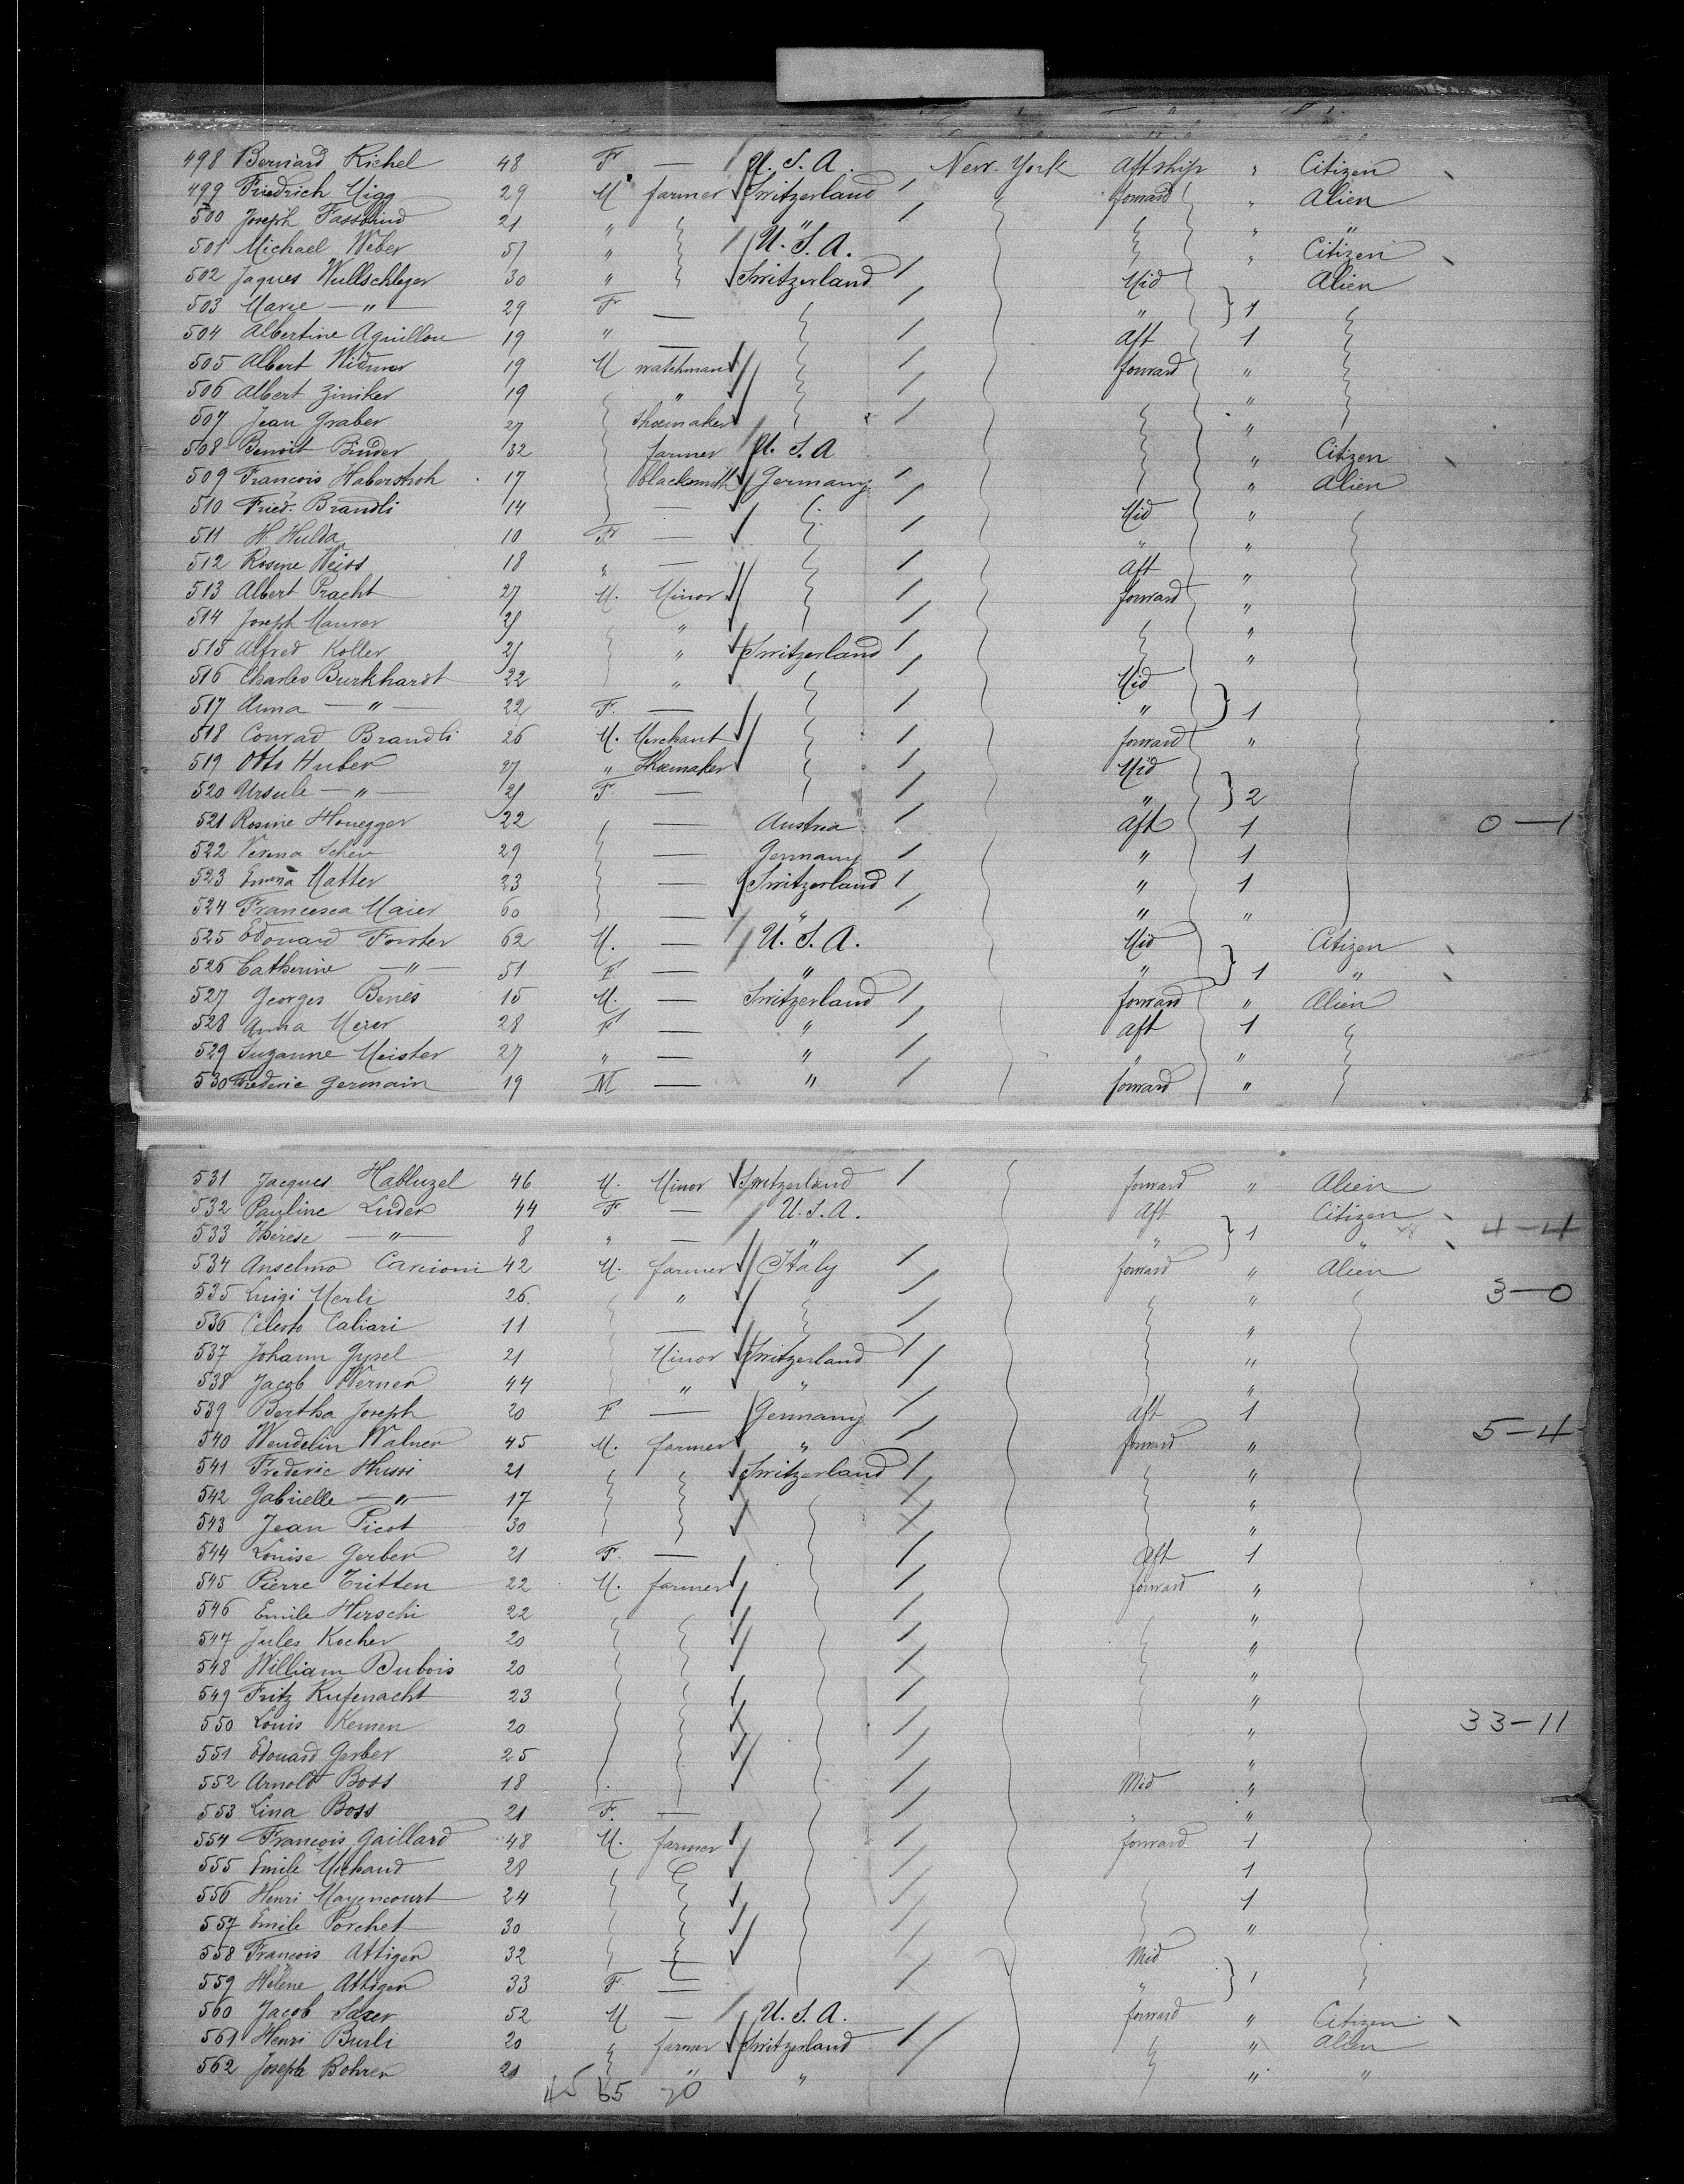 498 Bernard Richel 48 Fr — U. S. A. New York Aftship " Citizen
499 Friedrich Migg 29 M farmer Switzerland forward " Alien
500 Joseph Fassbind 21 " " " "
501 Michael Weber 51 " U. S. A. " Citizen
502 Jaques Wullschleger 30 " Switzerland Mid Alien
503 Marie — " — 29 Fr — " 1
504 Albertine Aguillon 19 " — Aft 1
505 Albert Widmer 19 M watchman forward "
506 Albert Ziniker 19 " "
507 Jean Graber 27 Shoemaker "
508 Benoit Binder 32 farmer U. S. A " Citizen
509 Francois Haberstroh 17 blacksmith Germany " Alien
510 Fried. Brandli 14 — Mid "
511 H. Hulda 10 Fr — " "
512 Rosine Weiss 18 " — Aft "
513 Albert Pracht 27 M. Minor forward "
514 Joseph Maurer 21 " "
515 Alfred Koller 21 " Switzerland "
516 Charles Burkhardt 22 " Mid
517 Anna — " — 22 F. — " 1
518 Conrad Brandli 26 M. Merchant forward "
519 Otto Huber 27 " Shoemaker Mid
520 Ursule — " — 21 F. — " 2
521 Rosine Honegger 22 — Austria Aft 1 0—1
522 Verena Scheu 29 — Germany " 1
523 Emma Matter 23 — Switzerland " 1
524 Francesca Maier 60 — " " "
525 Edouard Forster 62 M. — U. S. A. Mid Citizen
526 Catherine — " — 51 F. — " " 1 "
527 Georges Benes 15 M. — Switzerland forward " Alien
528 Anna Meier 28 F — " aft 1
529 Suzanne Meister 27 " — " " "
530 Frederic Germain 19 M — " forward "
531 Jacques Habluzel 46 M. Minor Switzerland forward " Alien
532 Pauline Luder 44 F. — U. S. A. Aft Citizen
533 Therese — " — 8 " — " " 1 " 4—4
534 Anselmo Carcioni 42 M. farmer Italy forward " Alien
535 Luigi Merli 26 " " 3—0
536 Celesto Caliari 11 — "
537 Johann Gysel 21 Minor Switzerland "
538 Jacob Werner 44 " " "
539 Bertha Joseph 20 F — Germany aft 1
540 Wendelin Walner 45 M. farmer " forward " 5—4
541 Frederic Hussi 21 Switzerland "
542 Gabrielle — " — 17 "
543 Jean Picot 30 "
544 Louise Gerber 21 F. — Aft 1
545 Pierre Tritten 22 M. farmer forward "
546 Emile Hirschi 22 "
547 Jules Kocher 20 "
548 William Dubois 20 "
549 Fritz Rufenacht 23 "
550 Louis Kemen 20 " 33—11
551 Edouard Gerber 25 "
552 Arnold Boss 18 Mid "
553 Lina Boss 21 F. — " "
554 François Gaillard 48 M. farmer forward 1
555 Emile Michaud 28 1
556 Henri Mayencourt 24 1
557 Emile Porchet 30 "
558 François Attiger 32 Mid
559 Hélène Attiger 33 F. — " 1
560 Jacob Saxer 52 M — U. S. A. forward " Citizen
561 Henri Burli 20 farmer Switzerland " Alien
562 Joseph Bohrer 21 " " " "
45 65 20